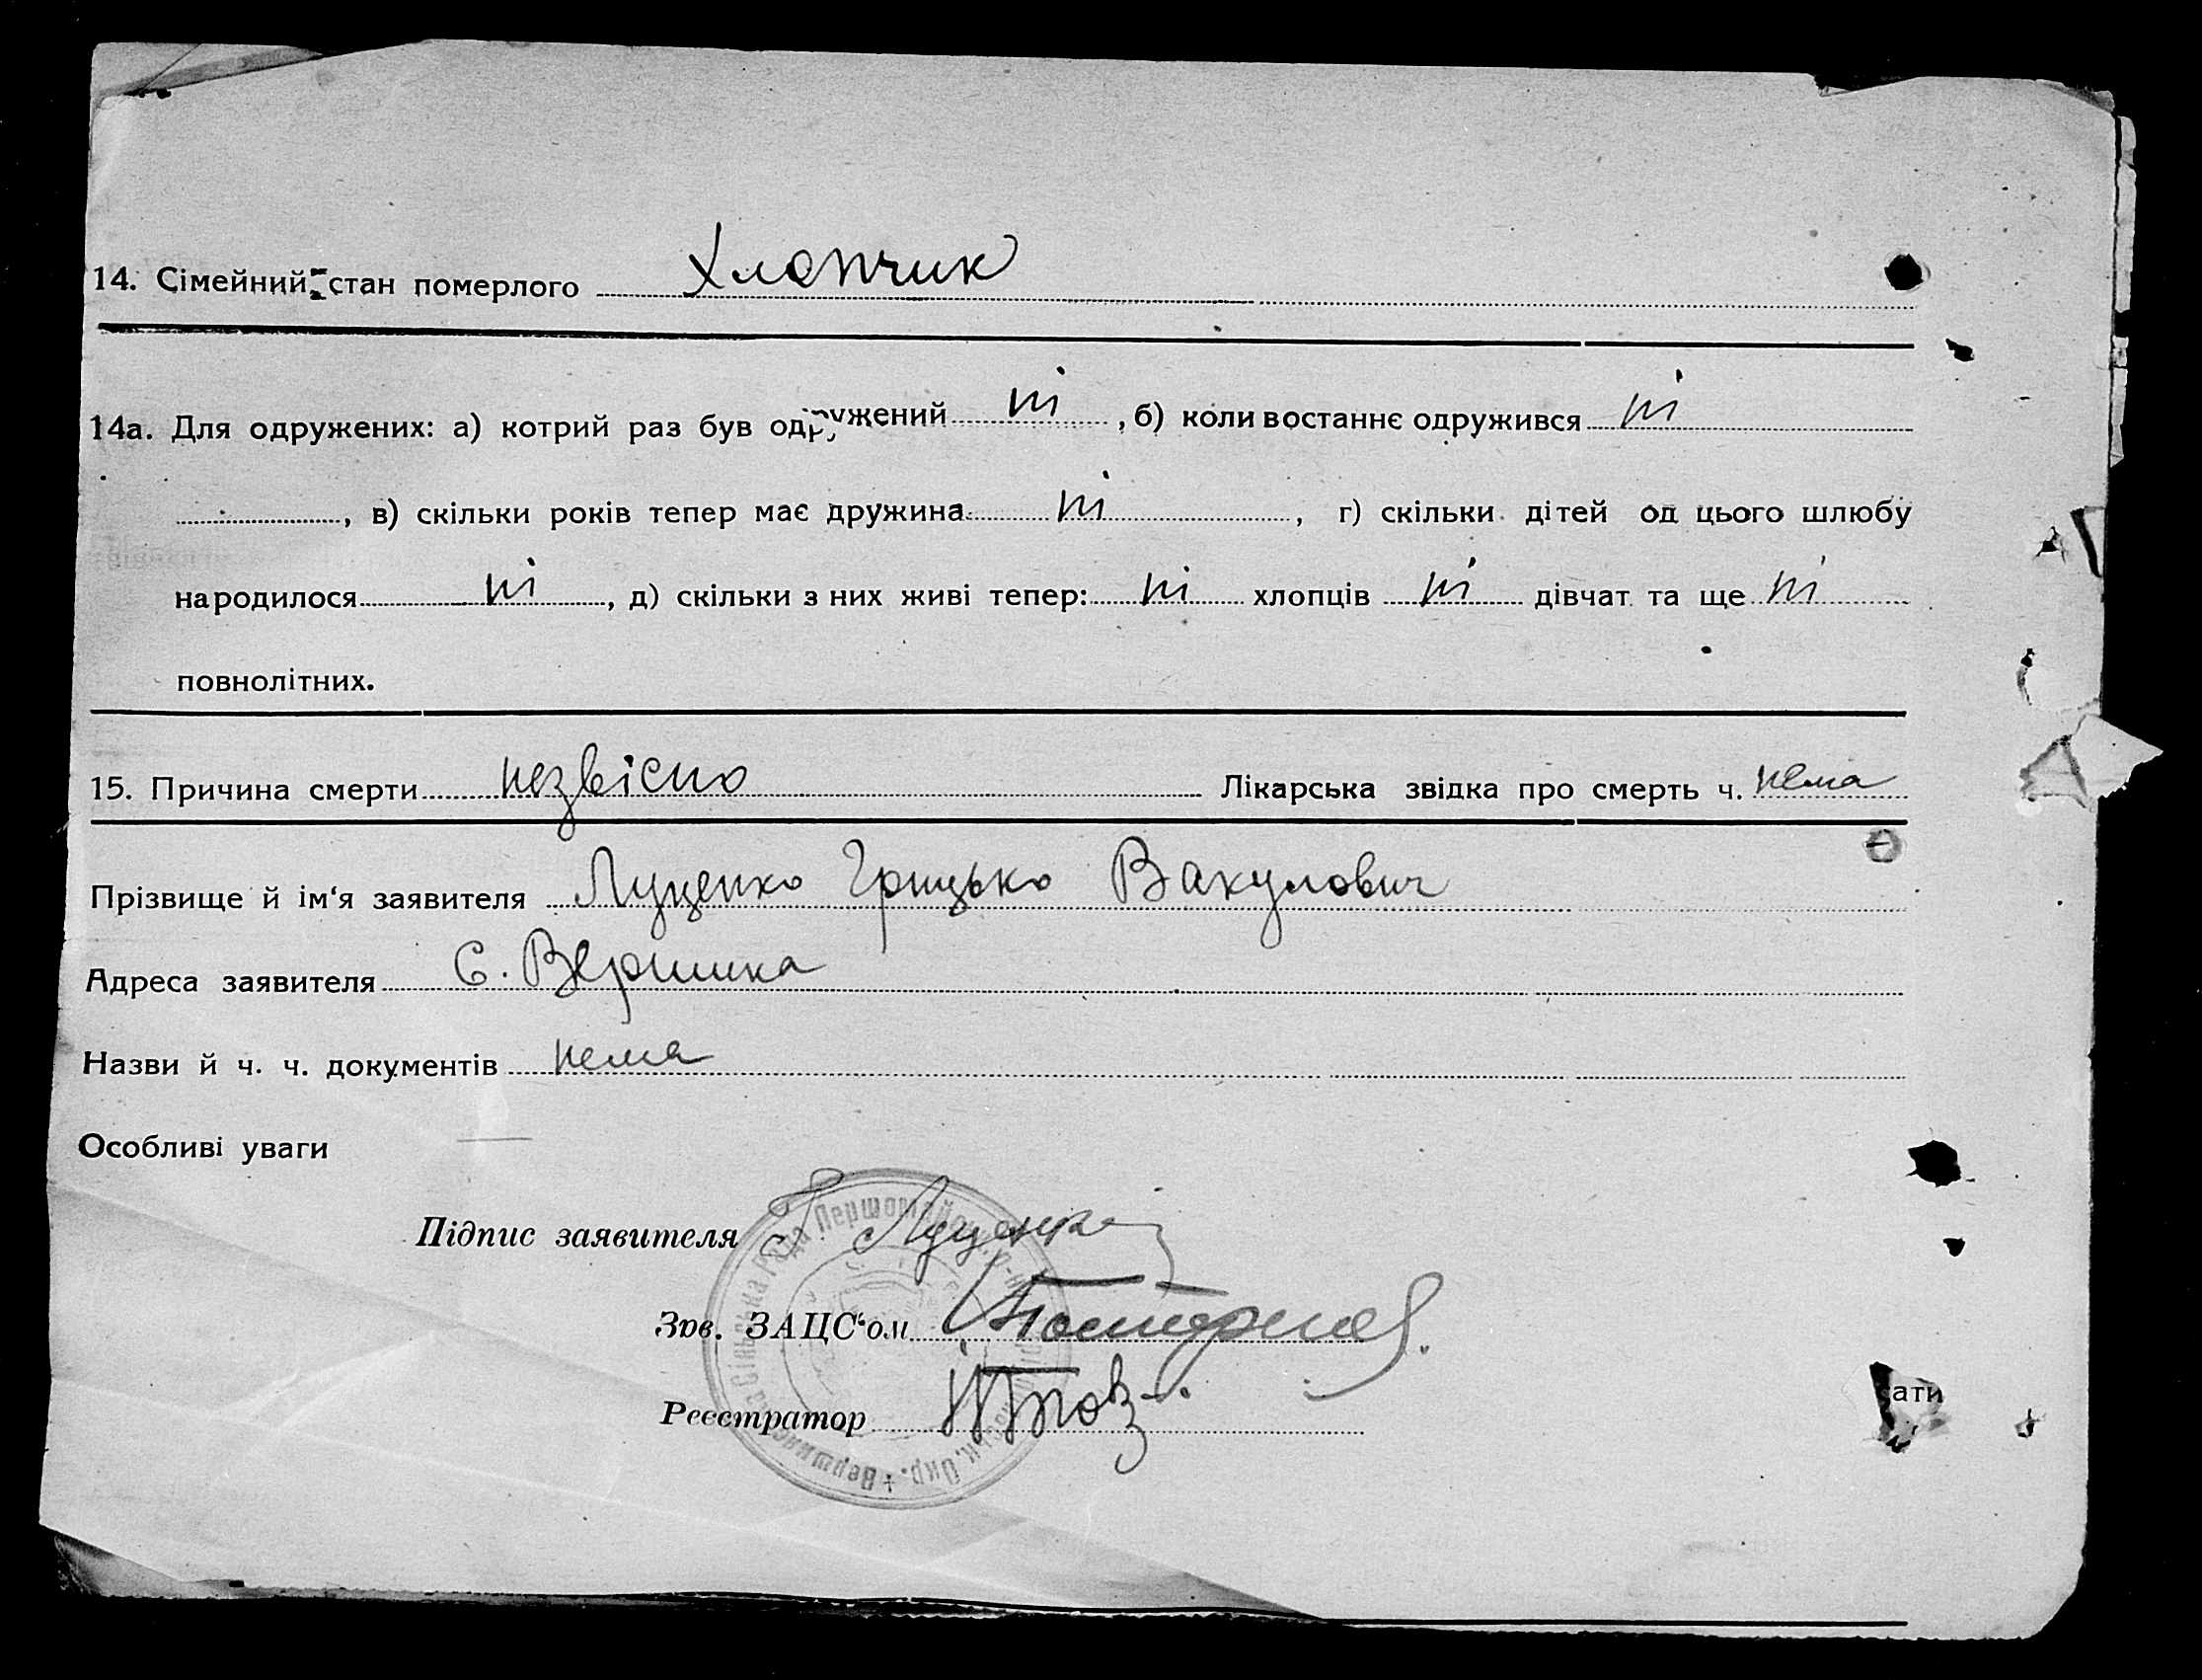 14. Сімейний стан померлого Хлопчик
14а. Для одружених: а) котрий раз був одружений ні, б) коли востаннє одружився ні
, в) скільки років тепер має дружина ні, г) скільки дітей од цього шлюбу
народилося ні, д) скільки з них живі тепер: ні хлопців ні дівчат та ще ні
повнолітних.
15. Причина смерти незвісно Лікарська звідка про смерть ч. нема
Прізвище й ім‘я заявителя Луценко Грицько Вакулович
Адреса заявителя с. Вершинка
Назви й ч. ч. документів нема
Особливі уваги
Підпис заявителя Г. Луценко
Зав. ЗАЦС‘ом
Реєстратор
ати
Сільська Рада Першомайськ. Р-ну Окр. + Вершинська